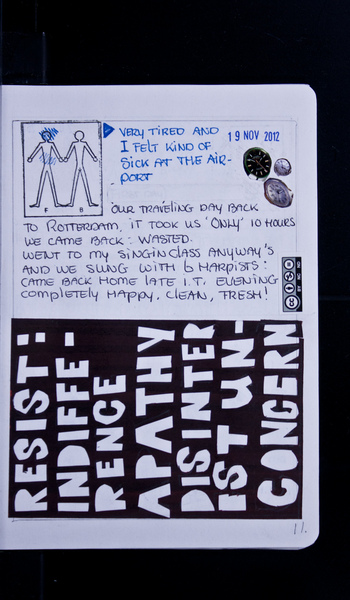 VERY TIRED AND
I FELT KIND OF
SICK AT THE AIR-
PORT
19 NOV 2012
F B
OUR TRAVELING DAY BACK
TO ROTTERDAM, IT TOOK US 'ONLY' 10 HOURS
WE CAME BACK: WASTED.
WENT TO MY SINGINCLASS ANYWAY'S
AND WE SUNG WITH 6 HARPISTS:
CAME BACK HOME LATE I.T. EVENING
COMPLETELY HAPPY, CLEAN, FRESH!
BY NC ND
RESIST:
INDIFFE-
RENCE
APATHY
DISINTER
IST UN-
CONCERN